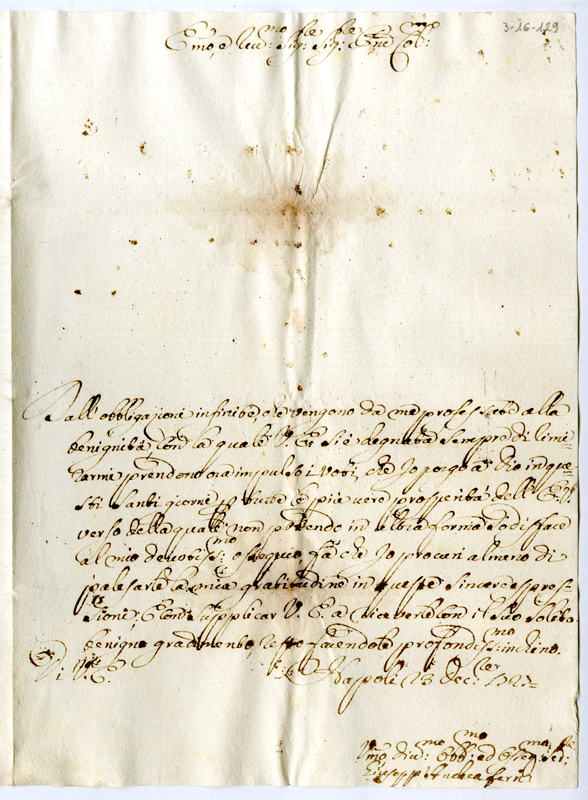 3-16-129
Em̄o, e Rev:mo Sig:re Sig:re P̄ne Col:mo
Dall'obbligazioni infinite, che vengono da me professate alla
benignità con la quale V. E. si è degnata sempre di
prendono ora impulso i voti, che Io porgo a Dio in que=
sti santi giorni tutte le più vere prosperità dell'E. V.
verso della quale non potendo in altra forma sodisfare
al mio devotiss:mo ossequio fà che Io procuri almeno di
palesarle la mia gratitudine in queste sincere espres=
sioni; E con supplicar V. E. a riceverle con il suo solito
benigno gradimento, resto facendole profondiss:mo inchino.
Di V. E.
Napoli 23 dec:bre 1727=
Um̄o div:mo obb:mo ed
Giuseppe Andrea